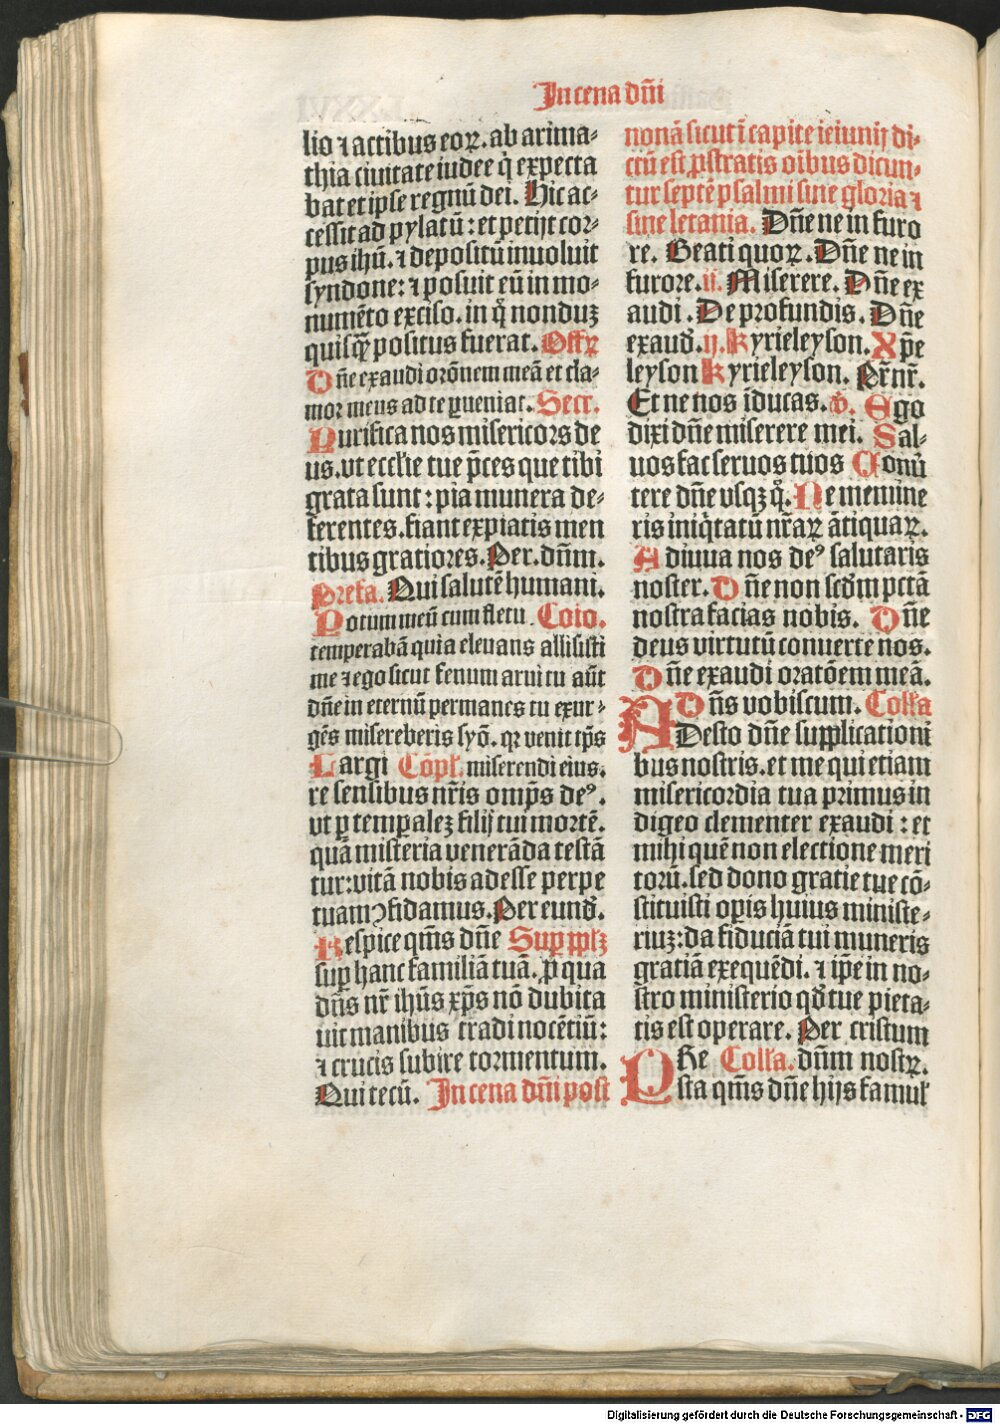 In cena dñi
lio ⁊ actibus eoꝝ. ab arima⸗
thia ciuitate iudee q̇ expecta
bat et ipse regnũ dei. Hic ac⸗
cessit ad pylatũ: et petijt cor⸗
pus ihũ. ⁊ depositũ inuoluit
syndone: ⁊ posuit eũ in mo⸗
numẽto exciso. in q̇ nonduꝫ
quisq̃ positus fuerat. Offꝝ
Dñe exaudi orõnem meã et cla⸗
mor meus ad te ꝑueniat. Secr.
Purifica nos misericors de
us. vt ecclie tue p̃ces que tibi
grata sunt: pia munera de⸗
ferentes. fiant expiatis men
tibus gratiores. Per. dñm.
Prefa. Qui salutẽ humani.
Potum meũ cum fletu. Coĩo.
temperabã quia eleuans allisisti
me ⁊ ego sicut fenum arui tu aũt
dñe in eternũ permanes tu exur⸗
gẽs misereberis syõ. qꝛ venit tp̃s
Largi Cõpl. miserendi eius.
re sensibus nr̃is omp̃s deꝰ.
vt ꝑ tempaleꝫ filij tui mortẽ.
quã misteria venerãda testã
tur: vitã nobis a desse perpe
tuam ꝯfidamus. Per eund̃.
Respice qm̃s dñe Suꝑ pplꝫ
suꝑ hanc familiã tuã. p̃ qua
dñs nr̃ ihũs xp̃s nõ dubita
uit manibus tradi nocẽtiũ:
⁊ crucis subire tormentum.
Qui tecũ. In cena dñi post
nonã sicut ĩ capite ieiunij di⸗
ctũ est ꝓstratis oĩbus dicun⸗
tur septẽ psalmi sine gloria ⁊
sine letania. Dñe ne in furo
re. Beati quoꝝ. Dñe ne in
furore. ii. Miserere. Dñe ex
audi. De profundis. Dñe
exaud̃. ij. Kyrieleyson. Xp̃e
leyson Kyrieleyson. Pr̃ nr̃.
Et ne nos ĩducas. ℣. Ego
dixi dñe miserere mei. Sal⸗
uos fac seruos tuos Conũ
tere dñe vsqꝫ q̊. Ne memine
ris iniq̇tatũ nr̃aꝝ ãtiquaꝝ.
Adiuua nos deꝰ salutaris
noster. Dñe non scd̃m pctã
nostra facias nobis. Dñe
deus virtutũ conuerte nos.
Dñe exaudi oratõem meã.
Dñs vobiscum. Coll̃a
ADesto dñe supplicationi
bus nostris. et me qui etiam
misericordia tua primus in
digeo clementer exaudi: et
mihi quẽ non electione meri
torũ. sed dono gratie tue cõ⸗
stituisti oꝑis huius ministe⸗
riuꝫ: da fiduciã tui muneris
gratiã exequẽdi. ⁊ ip̃e in no⸗
stro ministerio qd̃ tue pieta⸗
tis est operare. Per cristum
PRe Coll̃a. dñm nostꝝ.
sta qm̃s dñe hijs famul̃
Digitalisierung gefördert durch die Deutsche Forschungsgemeinschaft - DFG